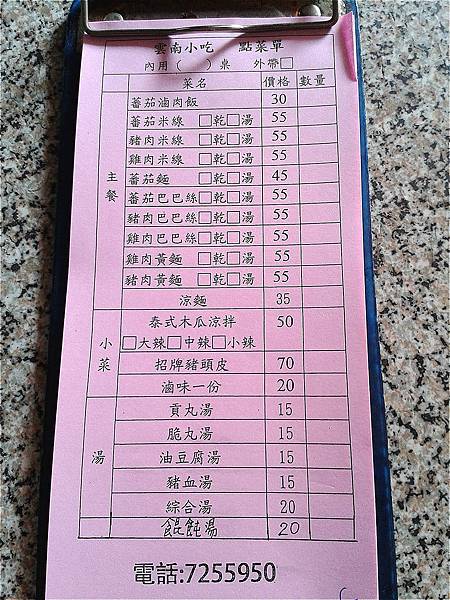 雲南小吃 點菜單
內用( )桌 外帶□
菜名 價格 數量
主餐
蕃茄滷肉飯 30
蕃茄米線 □乾□湯 55
豬肉米線 □乾□湯 55
雞肉米線 □乾□湯 55
蕃茄麵 □乾□湯 45
蕃茄巴巴絲□乾□湯 55
豬肉巴巴絲□乾□湯 55
雞肉巴巴絲□乾□湯 55
雞肉黃麵 □乾□湯 55
豬肉黃麵 □乾□湯 55
涼麵 35
小菜
泰式木瓜涼拌 50
□大辣□中辣□小辣
招牌豬頭皮 70
滷味一份 20
湯
貢丸湯 15
脆丸湯 15
油豆腐湯 15
豬血湯 15
綜合湯 20
餛飩湯 20
電話:7255950